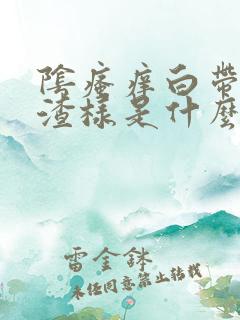 陰瘙痒白帶
渣樣是什麼
雷金鉢
未经同意禁止转载